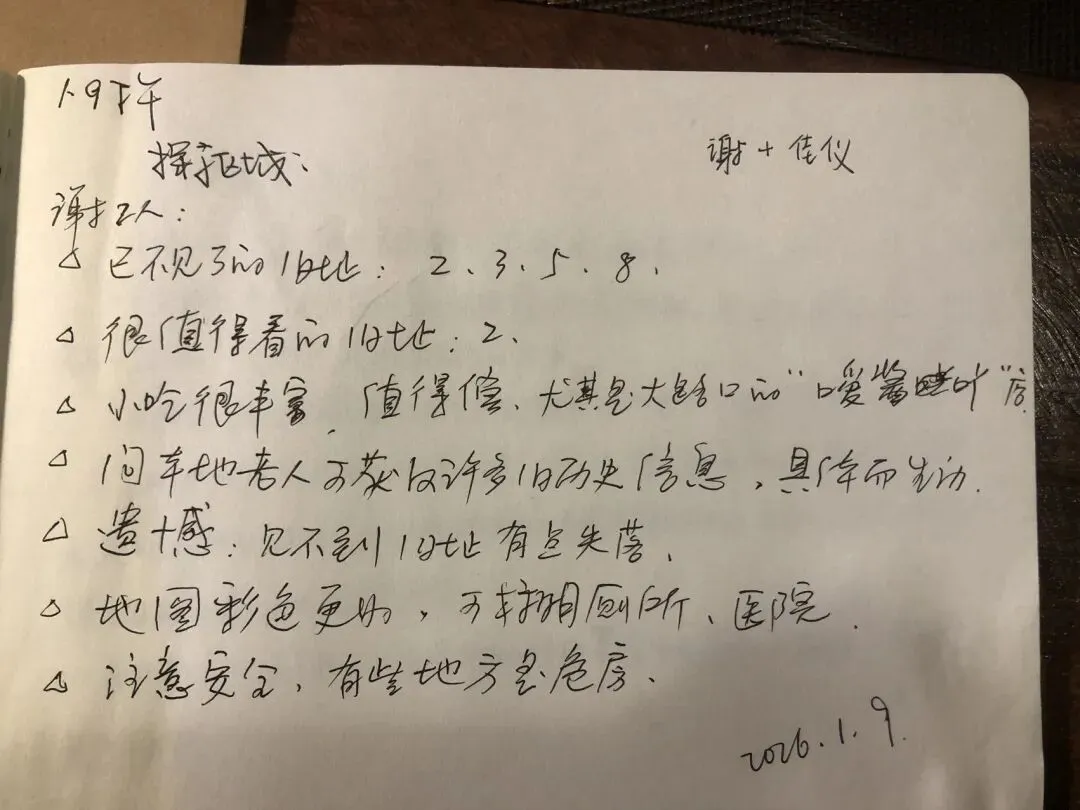 1.9下午
谢+佳仪
探旧城:
谢工人:
△ 已不见了的旧址: 2、3、5、8、
△ 很值得看的旧址: 2、
△ 小吃很丰富,值得偿、尤其是大路口的"嗳酱叶"店
△ 问本地老人可获的许多旧历史信息,具体而生动.
△ 遗憾:见不到旧址有点失落、
△ 地图彩色更好,可标明厕所、医院.
△ 注意安全、有些地方是危房、
2026.1.9.